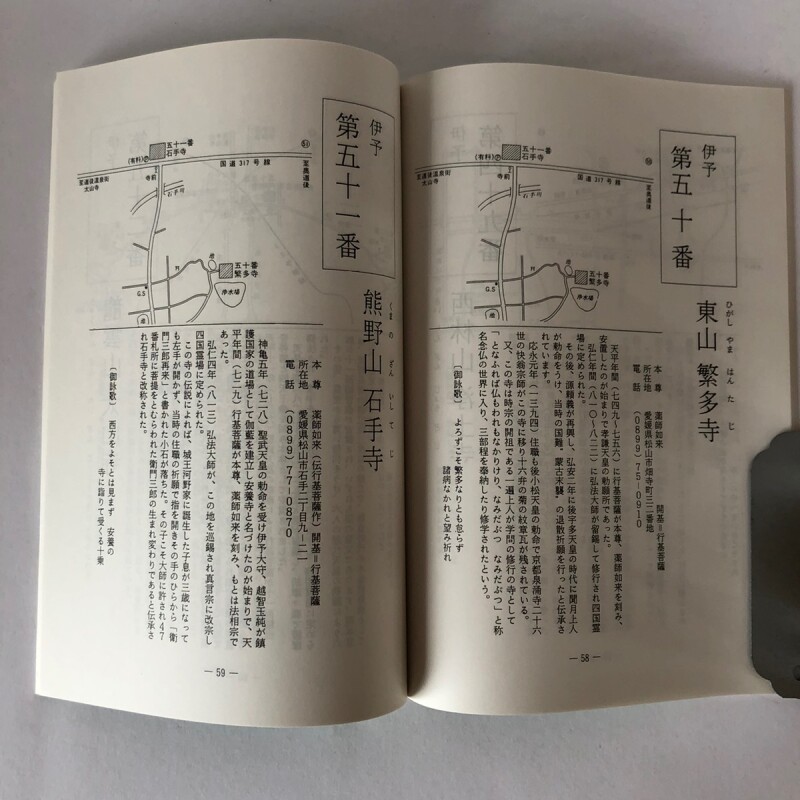 伊予
第五十番
東山 繁多寺
ひがし やま はん た じ
五十一番
石手寺
(有料)Ⓟ
国道317号線
至奥道後
至道後温泉街
太山寺
寺前
石手川
五十番
繁多寺
池
浄水場
G.S
池
本尊 薬師如来 開基=行基菩薩
所在地 愛媛県松山市畑寺町三二番地
電話 (0899)75-0910
天平年間(七四九~七五六)に行基菩薩が本尊、薬師如来を刻み、
安置したのが始まりで孝謙天皇の勅願所であった。
弘仁年間(八一〇~八二二)に弘法大師が留錫して修行され四国霊
場に定められた。
その後、源頼義が再興し、弘安二年に後宇多天皇の時代に聞月上人
が勅命をうけ、当時の国難。蒙古末襲。の退散祈願を行ったと伝承さ
れています。
応永元年(一三九四)住職も後小松天皇の勅命で京都泉涌寺二十六
世の快翁宗師がこの寺に移り十六弁の菊の紋章瓦が残されている。
又、この寺は時宗の開祖である一遍上人が学問の修行の寺として
「となふれば仏もわれもなかりけり、なみだぶつ なみだぶつ」と称
名念仏の世界に入り、三部程を奉納したり修学されたという。
〔御詠歌〕 よろずこそ繁多なりとも怠らず
諸病なかれと望み祈れ
— 58 —
伊予
第五十一番
熊野山 石手寺
くまの ざん いし て じ
五十一番
石手寺
(有料)Ⓟ
51
国道317号線
至奥道後
至道後温泉街
太山寺
寺前
石手川
五十番
繁多寺
池
浄水場
G.S
池
本尊 薬師如来(伝行基菩薩作)開基=行基菩薩
所在地 愛媛県松山市石手二丁目九ー二一
電話 (0899)77-0870
神亀五年(七二八)聖武天皇の勅命を受け伊予大守、越智玉純が鎮
護国家の道場として伽藍を建立し安養寺と名づけたのが始まりで、天
平年間(七二九)行基菩薩が本尊、薬師如来を刻み、もとは法相宗で
あった。
弘仁四年(八一三)弘法大師が、この地を巡錫され真言宗に改宗し
四国霊場に定められた。
この寺の伝説によれば、城王河野家に誕生した子息が三歳になって
も左手が開かず、当時の住職の祈願で指を開きその手のひらから「衛
門三郎再来」と書かれた小石が落ちた。その子こそ大師に許され47
番札所に菩提をとむらわれた衛門三郎の生まれ変わりであると伝承さ
れ石手寺と改称された。
〔御詠歌〕 西方をよそとは見まず 安養の
寺に詣りて受くる十楽
— 59 —